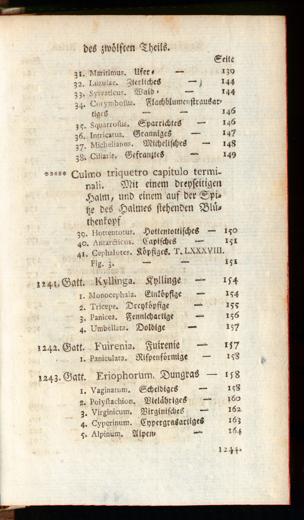 des zwölften Theils.
Seite
31. Maritimus. Ufer⸗ — 139
32. Luzulae. Zierliches — 144
33. Sylvaticus. Wald⸗ — 144
34. Corymbosus. Flachblumenstrausar⸗
tiges — — 146
35. Squarrosus. Sparrichtes — 146
36. Intricatus. Granniges — 147
37. Michelianus. Michelisches — 148
38. Ciliaris. Gefranztes — 149
***** Culmo triquetro capitulo termi⸗
nali. Mit einem dreyseitigen
Halm, und einem auf der Spi⸗
tze des Halmes stehenden Blü⸗
thenkopf
39. Hottentottus. Hottentottisches — 150
40. Antarcticus. Capisches — 151
41. Cephalotes. Köpfiges. T. LXXXVIII.
Fig. 3. — — 151
1241. Gatt. Kyllinga. Kyllinge — 154
1. Monocephala. Einköpfige — 154
2. Triceps. Dreyköpfige — 155
3. Panicea. Fennichartige — 156
4. Umbellata. Doldige — 157
1242. Gatt. Fuirenia. Fuirenie — 157
1. Paniculata. Rispenförmige — 158
1243. Gatt. Eriophorum. Dungras — 158
1. Vaginatum. Scheidiges — 158
2. Polystachion. Vielähriges — 160
3. Virginicum. Virginisches — 162
4. Cyperinum. Cypergrasartiges 163
5. Alpinum. Alpen⸗ — 164
1244.